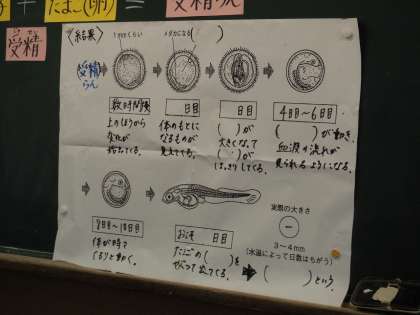 たまご(卵) = 受精らん
受精
<結果>
1mmくらい
メダカになる( )
受精らん
数時間後
日目
日目
4日目〜6日目
上のほうから
変化が
始まってくる。
体のもとに
なるものが
見えてくる。
( )が
大きくなって
( )が
はっきりしてくる。
( )が動き、
血液の流れが
見られるようになる。
8日目〜10日目
およそ 日目
体が時々
くるりと動く。
たまごの( )を
やぶって出てくる。
( )という。
実際の大きさ
3〜4mm
(水温によって日数はちがう)